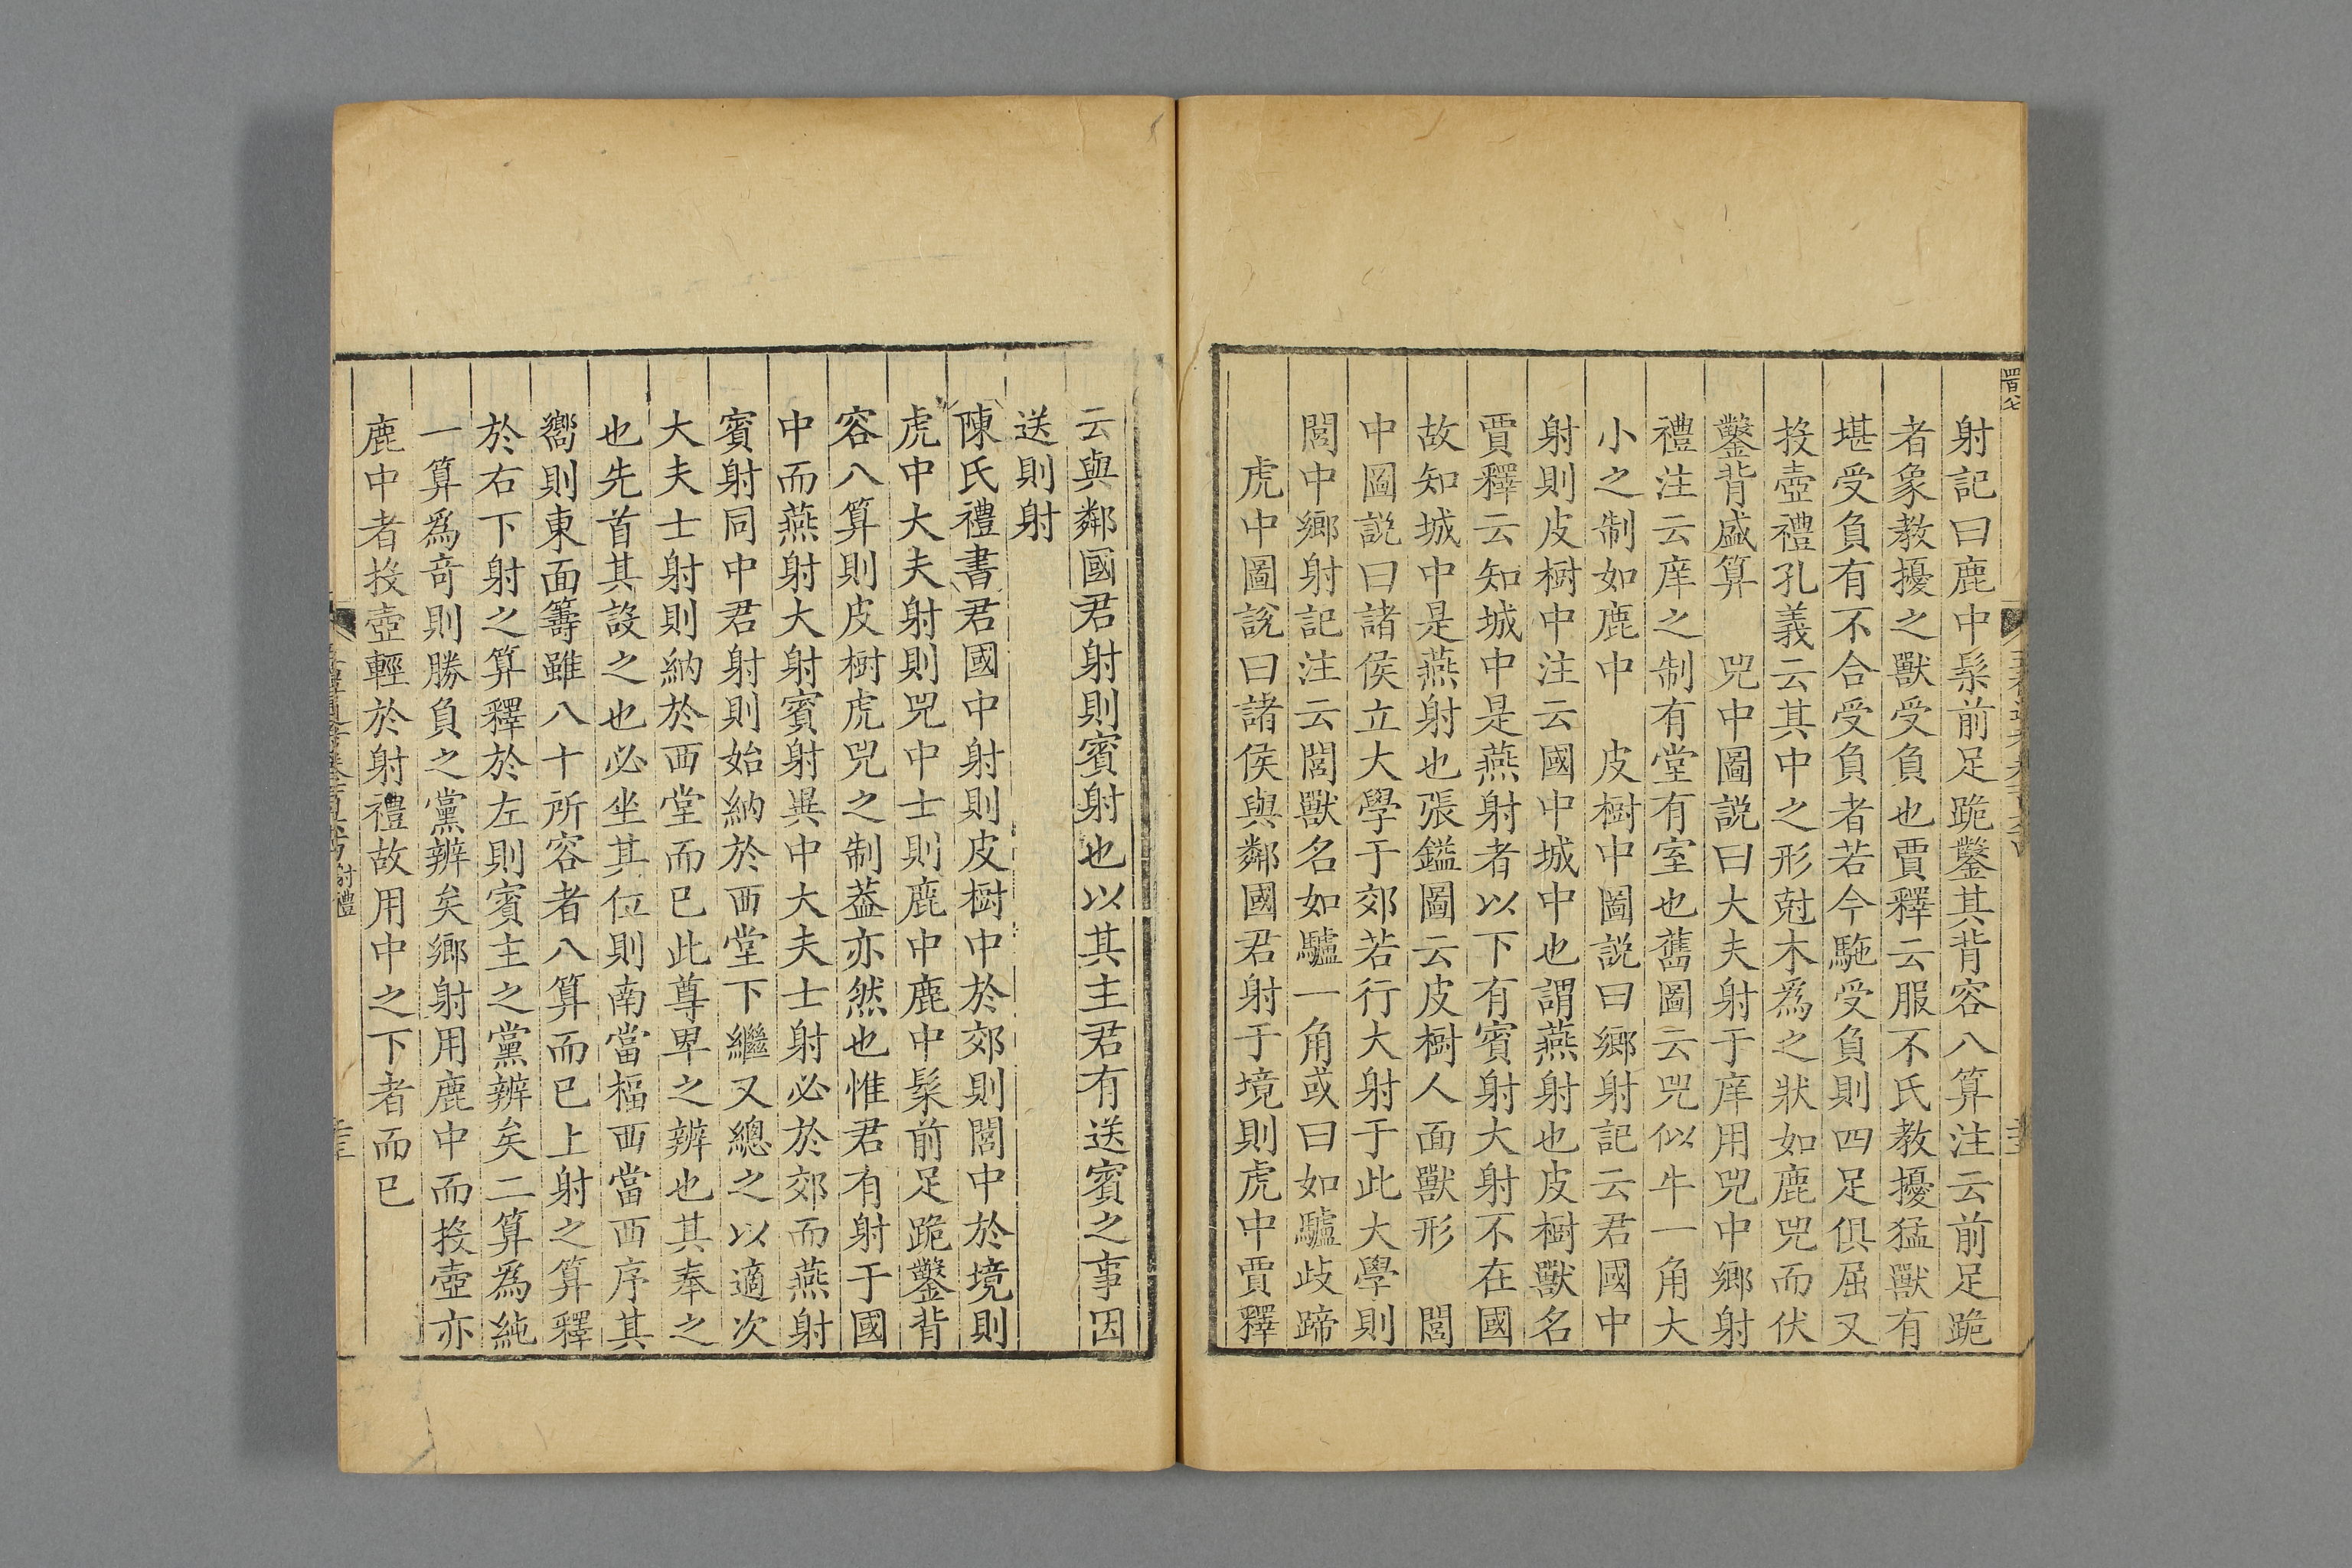 射記曰鹿中髤前足跪鑿其背容八算注云前足跪
者象教擾之獸受負也賈釋云服不氏教擾猛獸有
堪受負有不合受負者若今駞受負則四足俱屈又
投壺禮孔義云其中之形尅木為之狀如鹿兕而伏
鑿背盛算　兕中圖説曰大夫射于庠用兕中鄉射
禮注云庠之制有堂有室也舊圖云兕似牛一角大
小之制如鹿中　皮樹中圖説曰鄉射記云君國中
射則皮樹中注云國中城中也謂燕射也皮樹獸名
賈釋云知城中是燕射者以下有賓射大射不在國
故知城中是燕射也張鎰圖云皮樹人面獸形　閭
中圖説曰諸侯立大學于郊若行大射于此大學則
閭中鄉射記注云閭獸名如驢一角或曰如驢歧蹄
虎中圖説曰諸侯與鄰國君射于境則虎中賈釋
云與鄰國君射則賓射也以其主君有送賓之事因
送則射
陳氏禮書君國中射則皮樹中於郊則閭中於境則
虎中大夫射則兕中士則鹿中鹿中髤前足跪鑿背
容八算則皮樹虎兕之制葢亦然也惟君有射于國
中而燕射大射賓射異中大夫士射必於郊而燕射
賓射同中君射則始納於西堂下繼又總之以適次
大夫士射則納於西堂而已此尊卑之辨也其奉之
也先首其設之也必坐其位則南當楅西當西序其
嚮則東面籌雖八十所容者八算而已上射之算釋
於右下射之算釋於左則賓主之黨辨矣二算為純
一算爲奇則勝負之黨辨矣鄉射用鹿中而投壺亦
鹿中者投壺輕於射禮故用中之下者而已
射禮